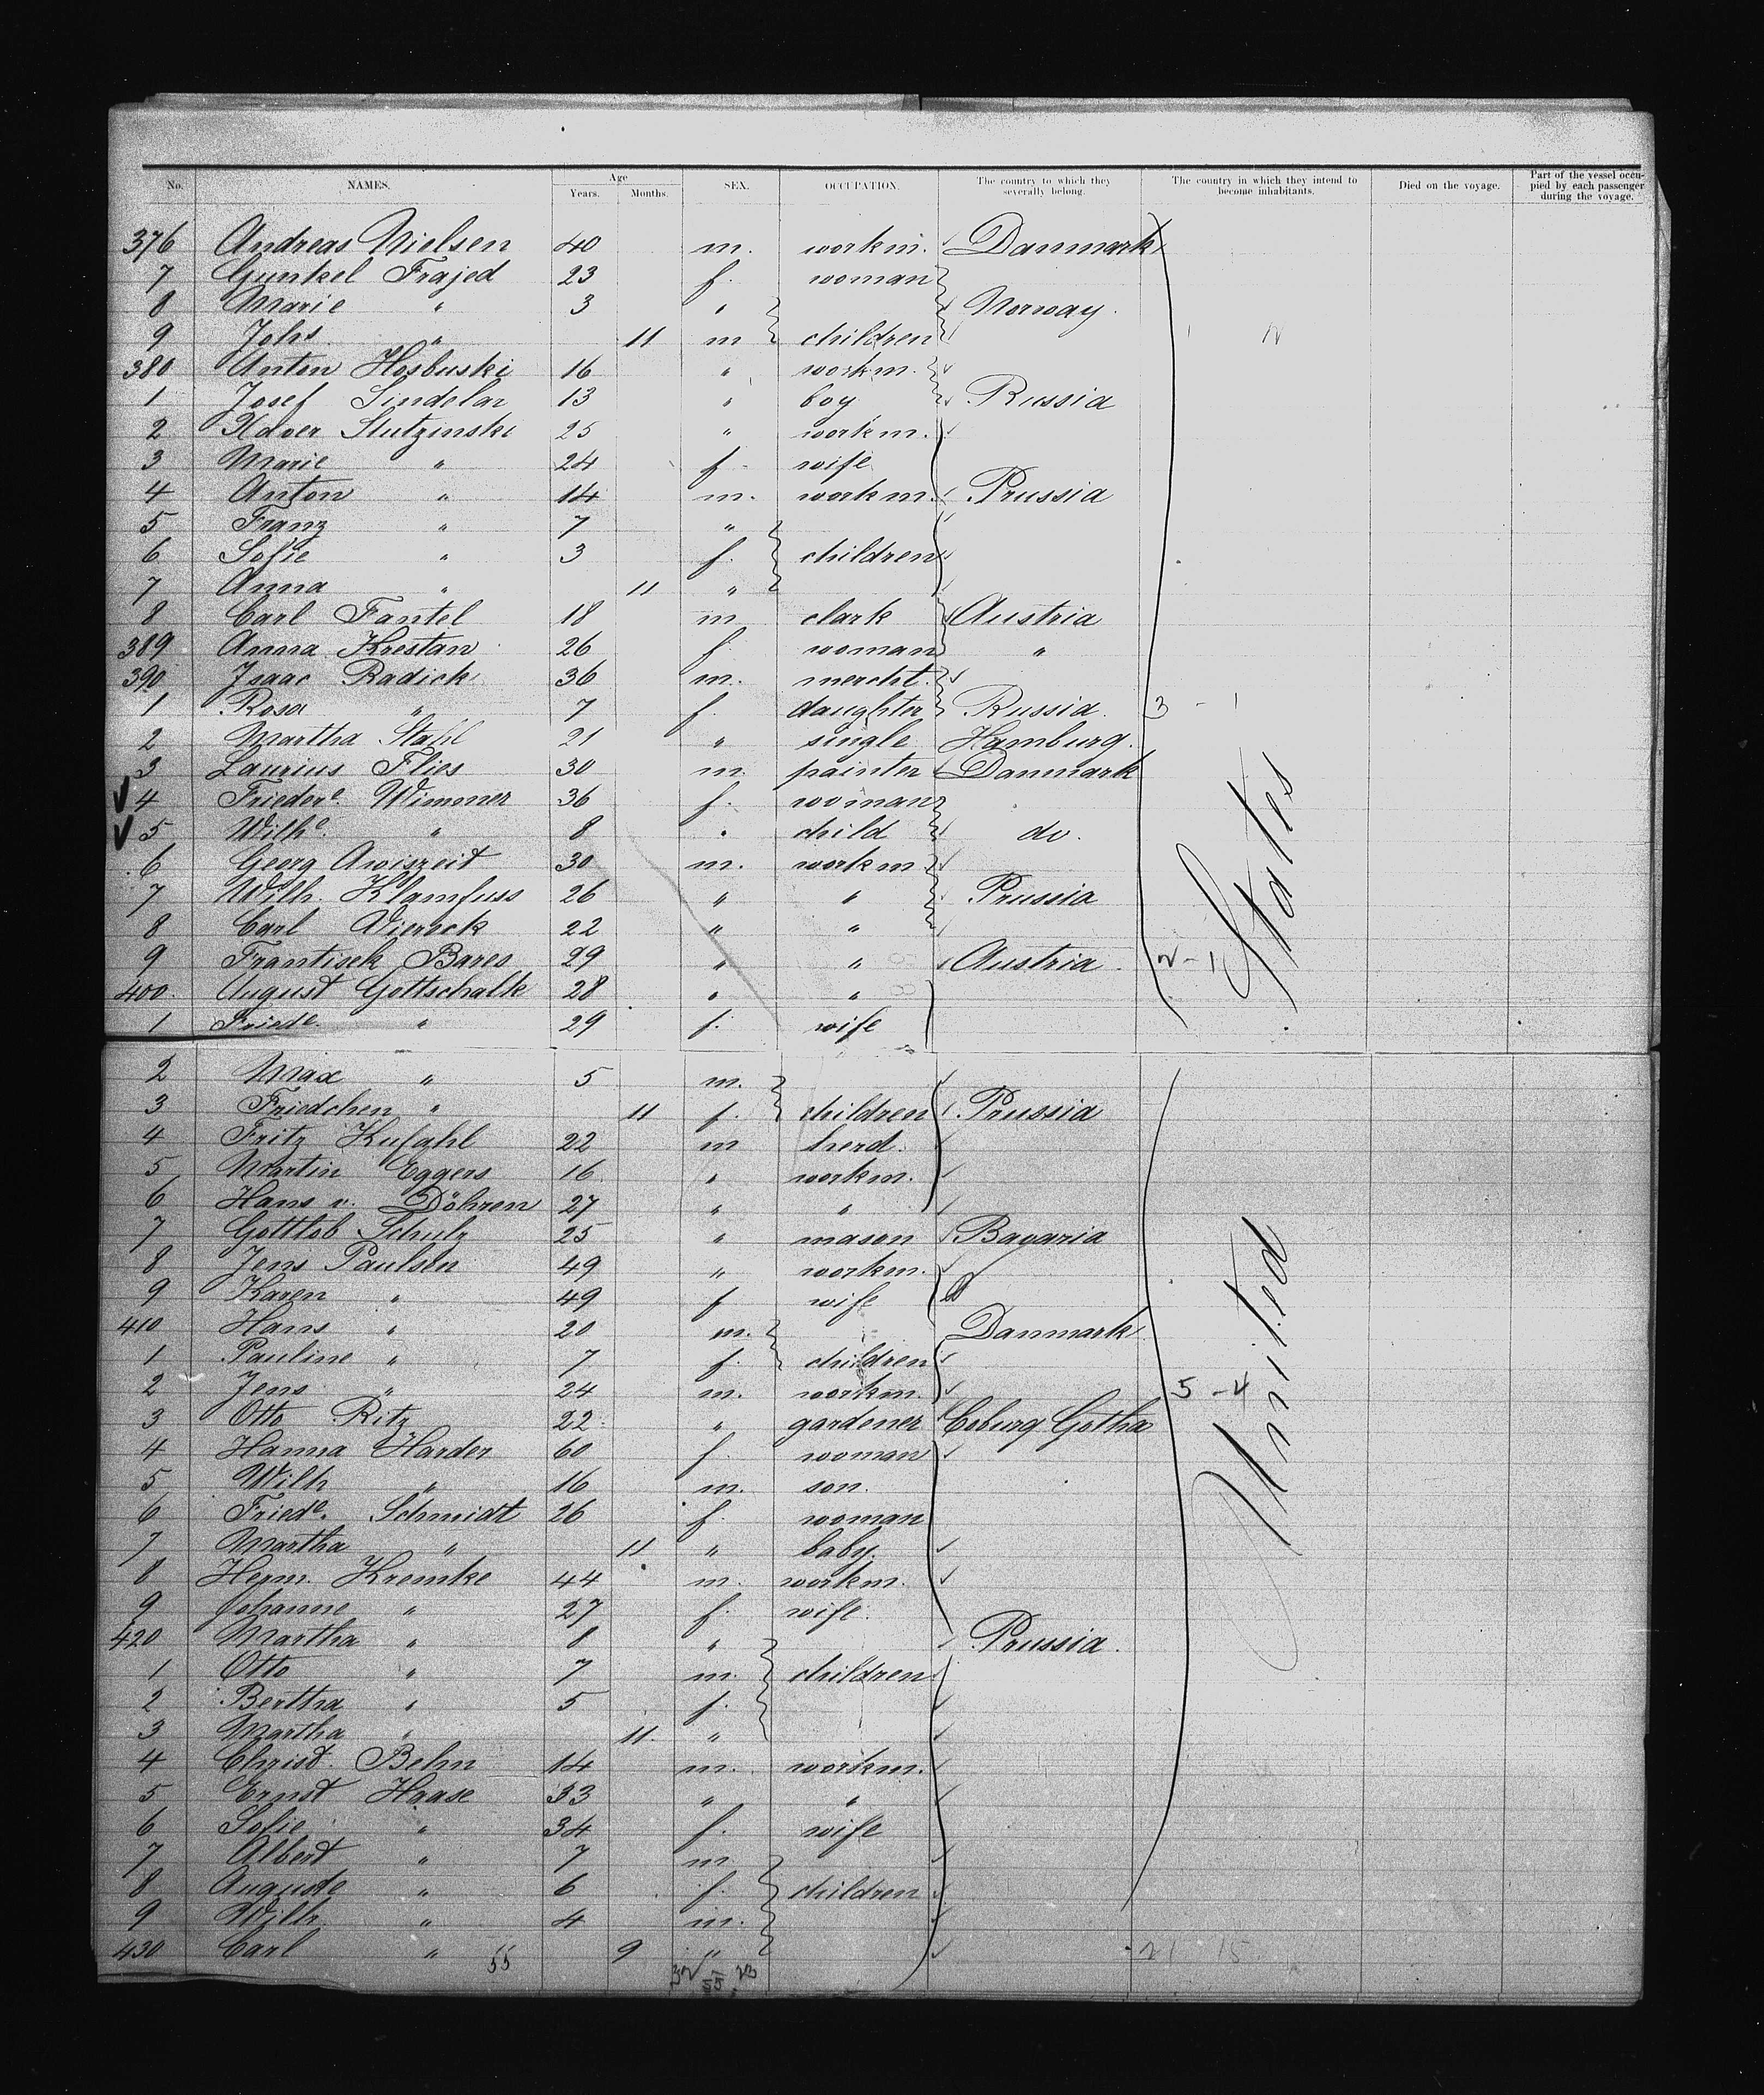 No. NAMES. Age Years. Months. SEX. OCCUPATION. The country to which they severally belong. The country in which they intend to become inhabitants. Died on the voyage. Part of the vessel occupied by each passenger during the voyage.
376 Andreas Nielsen 40 m. workm. Danmark
7 Gunkel Frajed 23 f. woman
8 Marie " 3 " Norway.
9 Johs. " 11 m children
380 Anton Hosbuski 16 " workm.
1 Josef Sindelar 13 " boy Russia
2 Slutzinski 25 " workm.
3 Marie " 24 f. wife
4 Anton " 14 m. workm. Prussia
5 Franz " 7 "
6 Sofie " 3 f. children
7 Anna " 11 "
8 Carl Fantel 18 m clark Austria
389 Anna Krestan 26 f. woman "
390 Isaac Radick 36 m. mercht.
1 Rosa " 7 f. daughter Russia. 3 - 1
2 Martha Stahl 21 " single Hamburg.
3 Laurius Flies 30 m. painter Danmark
4 Friedere. Wimmer 36 f. woman
5 Wilhe. " 8 " child do.
6 Georg Awiszeit 30 m. workm
7 Wilh. Klamfuss 26 " " Prussia
8 Carl Viereck 22 " "
9 Frantisek Bares 29 " " Austria.
400. August Gottschalk 28 " "
1 Friede. " 29 f. wife
2 Max " 5 m.
3 Friedchen " 11 f. children Prussia
4 Fritz Kufahl 22 m herd.
5 Martin Eggers 16 " workm.
6 Hans v. Döhren 27 " "
7 Gottlob Schulz 25 " mason Bavaria
8 Jens Paulsen 49 " workm.
9 Karen " 49 f wife
410 Hans " 20 m. Danmark
1 Pauline " 7 f. children
2 Jens " 24 m. workm.
3 Otto Ritz 22 " gardener Coburg Gotha
4 Hanna Harder 60 f. woman
5 Wilh " 16 m. son.
6 Friede. Schmidt 26 f. woman
7 Martha " 11 " baby.
8 Herm. Kremke 44 m. workm.
9 Johanne " 27 f. wife.
420 Martha " 8 " Prussia.
1 Otto " 7 m. children
2 Bertha " 5 f.
3 Martha " 11. "
4 Christ. Behn 14 m. workm.
5 Ernst Haase 33 " "
6 Sofie " 34 f. wife
7 Albert " 7 m
8 Auguste " 6 f. children
9 Wilh. " 4 m.
430 Carl " 9 "
55
United States